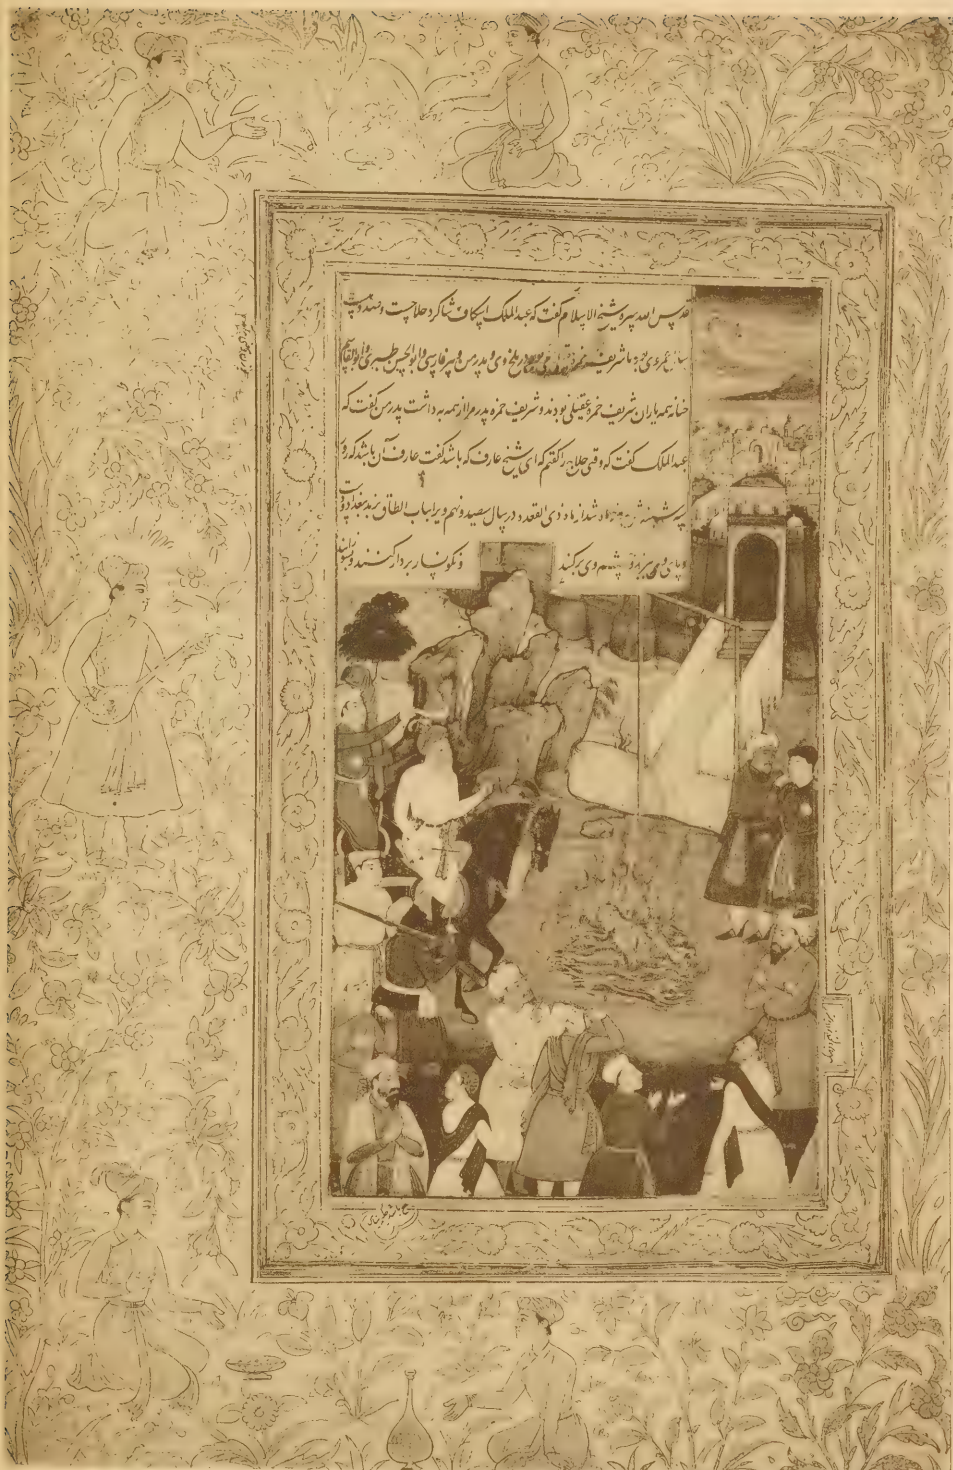 قدس الله سره شیخ الاسلام گفت که عبدالملک اسکاف شاگرد حلاجست و صد و بیست
سال عمر وی بود با شریف حمزه عقیلی بود در بلخ وی و پدر من و پیر فارسی و ابوالحسن طبری و ابوالقاسم
حنانه همه یاران شریف حمزه عقیلی بودند و شریف حمزه پدر مرا از همه به داشت پدر من گفت که
عبدالملک گفت که وقتی حلاج را گفتم که ای شیخ عارف که باشد گفت عارف آن باشد که روز
سه شنبه شش روز مانده باشد از ماه ذی القعده در سال سیصد و نهم ویرا بباب الطاق برند ببغداد و دست
و پای وی ببرند و چشم وی برکنند و نگونسار بر دار کنند و بسوزند